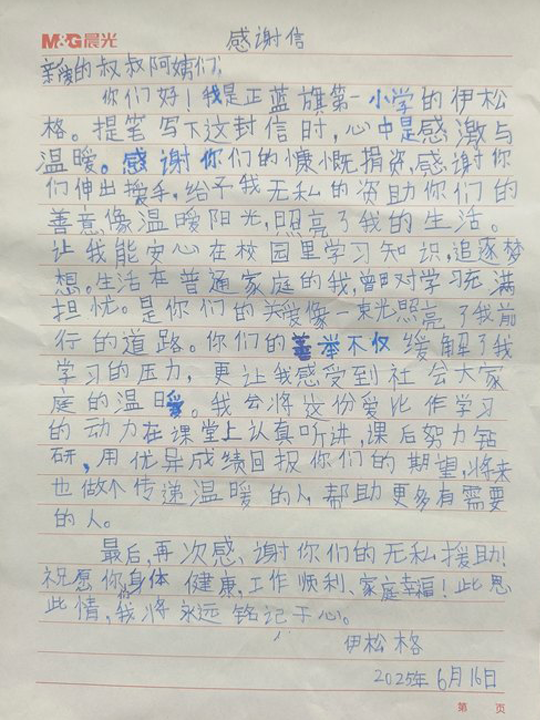 M&G晨光
感谢信
亲爱的叔叔阿姨们,
你们好！我是正蓝旗第一小学的伊松
格。提笔写下这封信时,心中是感激与
温暖。感谢你们的慷慨捐资,感谢你
们伸出援手,给予我无私的资助你们的
善意像温暖阳光,照亮了我的生活。
让我能安心在校园里学习知识,追逐梦
想。生活在普通家庭的我,曾对学习充满
担忧。是你们的关爱像一束光照亮了我前
行的道路。你们的善举不仅缓解了我
学习的压力,更让我感受到社会大家
庭的温暖。我会将这份爱比作学习
的动力在课堂上认真听讲,课后努力钻
研,用优异成绩回报你们的期望,将来
也做个传递温暖的人,帮助更多有需要
的人。
最后,再次感谢你们的无私援助!
祝愿你们身体健康,工作顺利、家庭幸福！此恩
此情,我将永远铭记于心。
伊松格
2025年6月16日
第 页